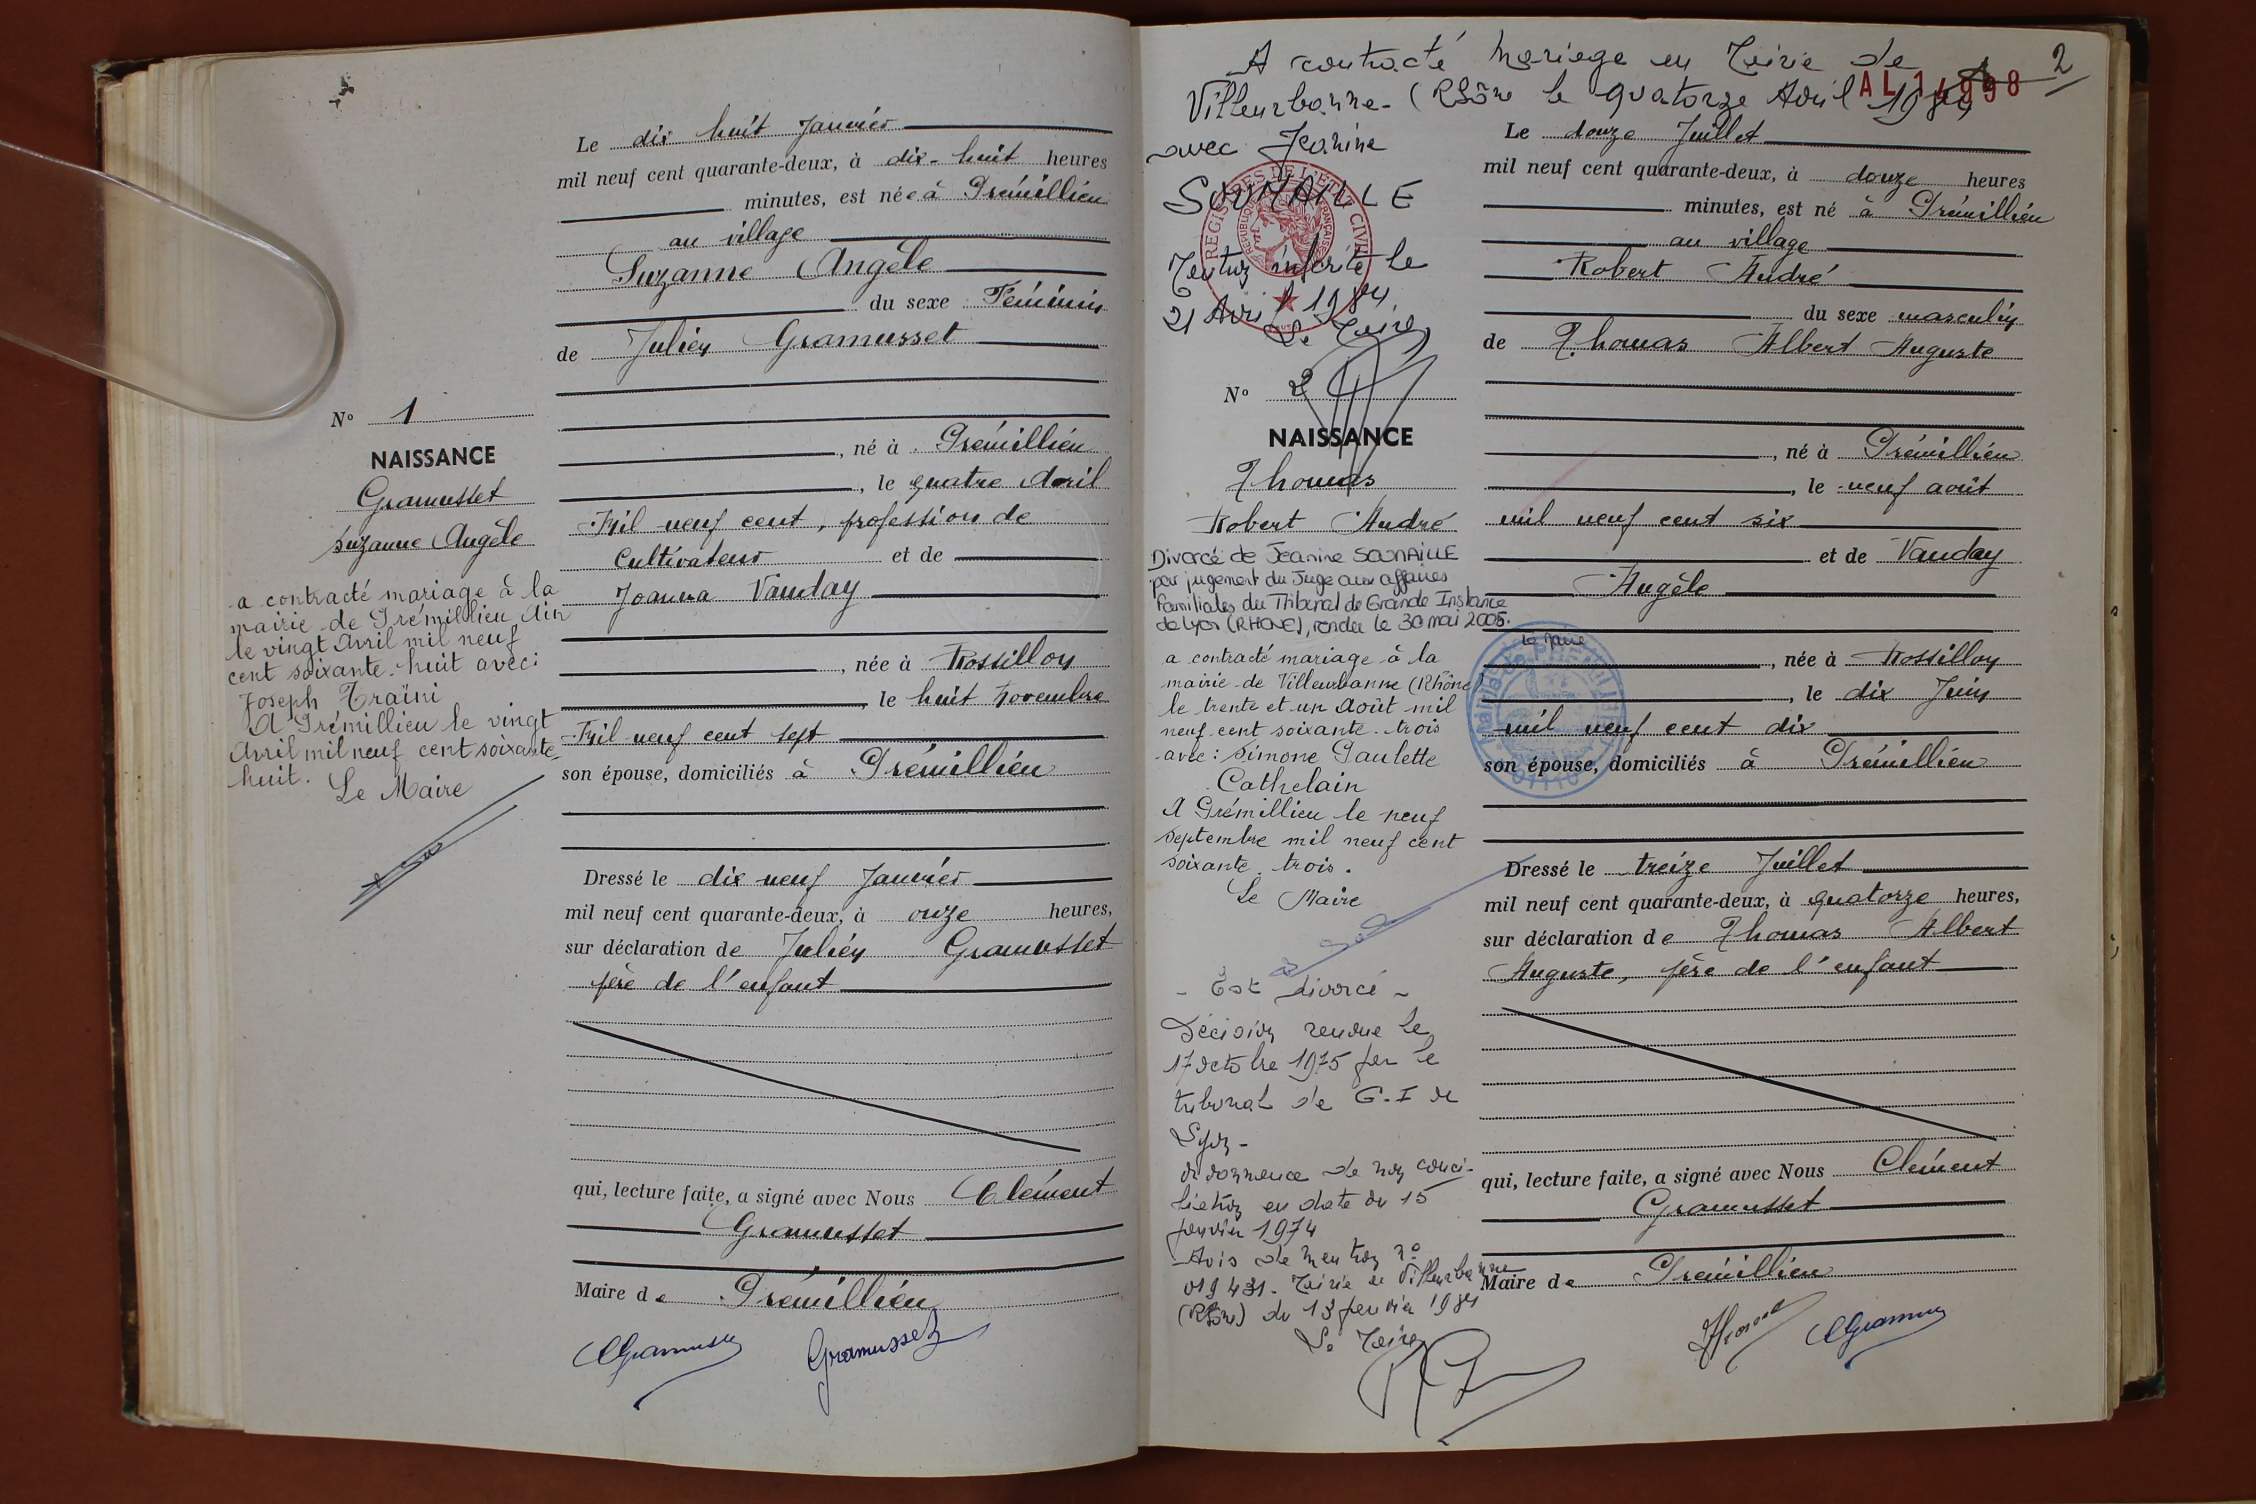 N° 1
NAISSANCE
Gramusset
Suzanne Angèle
a contracté mariage à la
mairie de Prémillieu Ain
le vingt Avril mil neuf
cent soixante-huit avec:
Joseph Traïni
A Prémillieu le vingt
Avril mil neuf cent soixante
huit. Le Maire
Le dix huit Janvier
mil neuf cent quarante-deux, à dix-huit heures
minutes, est née à Prémillieu
au village
Suzanne Angèle
du sexe Féminin
de Julien Gramusset
, né à Prémillieu
, le quatre Avril
Mil neuf cent, profession de
Cultivateur et de
Joanna Vauday
, née à Rossillon
, le huit Novembre
Mil neuf cent sept
son épouse, domiciliés à Prémillieu
Dressé le dix neuf Janvier
mil neuf cent quarante-deux, à onze heures,
sur déclaration de Julien Gramusset
père de l'enfant
qui, lecture faite, a signé avec Nous Clément
Gramusset
Maire de Prémillieu
Gramusset
A contracté mariage en Mairie de
Villeurbanne - (Rhône le quatorze Avril 1984
2
AL 14998
avec Jeanine
SOUNAILLE
Mention inscrite le
21 Avril 1984.
Le Maire
REGISTRES DE L'ETAT CIVIL
REPUBLIQUE FRANÇAISE
N° 2
NAISSANCE
Thomas
Robert André
Divorcé de Jeanine SOUNAILLE
par jugement du Juge aux affaires
familiales du Tribunal de Grande Instance
de Lyon (RHONE), rendu le 30 mai 2005.
Le Maire
a contracté mariage à la
mairie de Villeurbanne (Rhône)
le trente et un Août mil
neuf cent soixante-trois
avec: Simone Paulette
Cathelain
A Prémillieu le neuf
septembre mil neuf cent
soixante-trois.
Le Maire
- Est divorcé -
Décision rendue le
17 octobre 1975 par le
tribunal de G.I de
Lyon -
ordonnance de non conci-
liation en date du 15
janvier 1974
- Avis de mention n°
019431. Mairie de Villeurbanne
(Rhône) du 13 janvier 1984
Le Maire
Le douze Juillet
mil neuf cent quarante-deux, à douze heures
minutes, est né à Prémillieu
au village
Robert André
du sexe masculin
de Thomas Albert Auguste
, né à Prémillieu
, le neuf août
mil neuf cent six
et de Vauday
Angèle
, née à Rossillon
, le dix Juin
mil neuf cent dix
son épouse, domiciliés à Prémillieu
Dressé le treize Juillet
mil neuf cent quarante-deux, à quatorze heures,
sur déclaration de Thomas Albert
Auguste, père de l'enfant
qui, lecture faite, a signé avec Nous Clément
Gramusset
Maire de Prémillieu